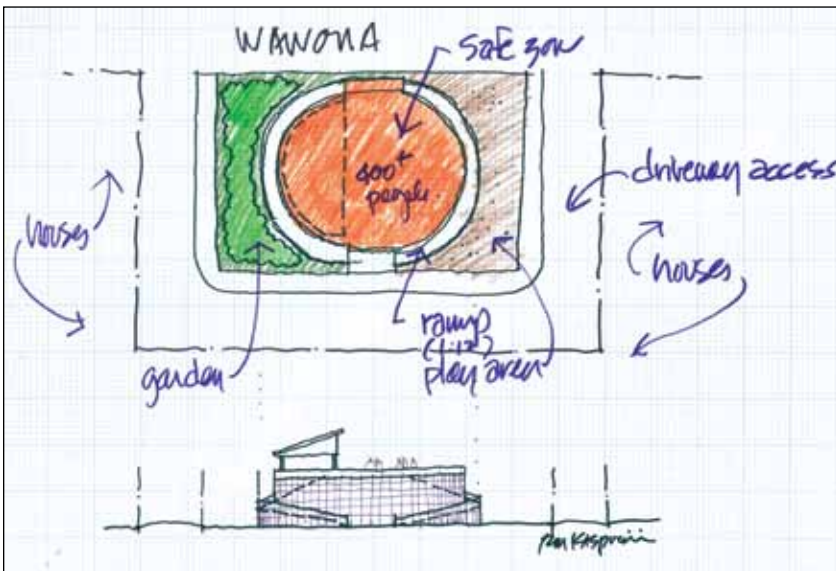 WAWONA
safe zone
400+
people
driveway access
houses
houses
ramp
(1:12)
play area
garden
Ron Kasprisin